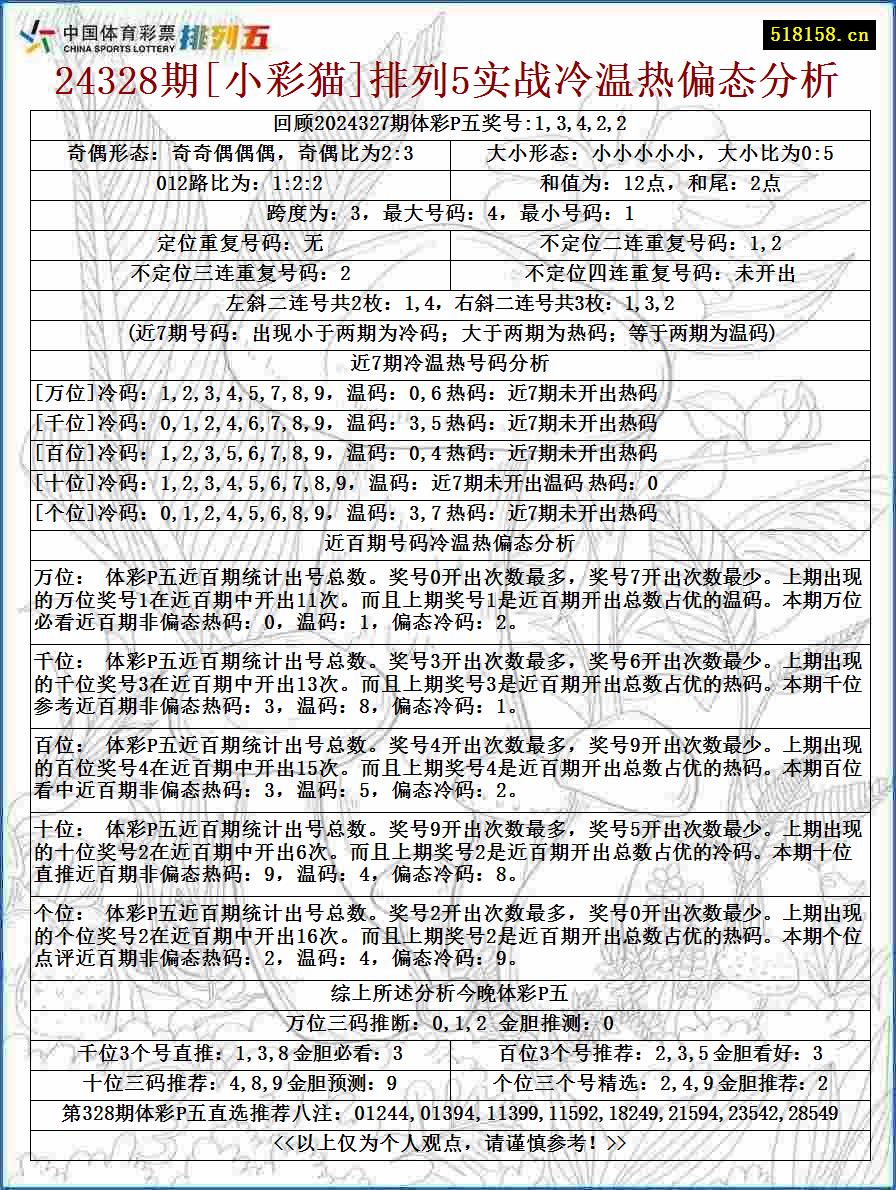 中国体育彩票
CHINA SPORTS LOTTERY
排列五
518158.cn
24328期[小彩猫]排列5实战冷温热偏态分析
回顾2024327期体彩P五奖号:1,3,4,2,2
奇偶形态：奇奇偶偶偶，奇偶比为2:3
大小形态：小小小小小，大小比为0:5
012路比为：1:2:2
和值为：12点，和尾：2点
跨度为：3，最大号码：4，最小号码：1
定位重复号码：无
不定位二连重复号码：1,2
不定位三连重复号码：2
不定位四连重复号码：未开出
左斜二连号共2枚：1,4，右斜二连号共3枚：1,3,2
(近7期号码：出现小于两期为冷码；大于两期为热码；等于两期为温码)
近7期冷温热号码分析
[万位]冷码：1,2,3,4,5,7,8,9，温码：0,6 热码：近7期未开出热码
[千位]冷码：0,1,2,4,6,7,8,9，温码：3,5 热码：近7期未开出热码
[百位]冷码：1,2,3,5,6,7,8,9，温码：0,4 热码：近7期未开出热码
[十位]冷码：1,2,3,4,5,6,7,8,9，温码：近7期未开出温码 热码：0
[个位]冷码：0,1,2,4,5,6,8,9，温码：3,7 热码：近7期未开出热码
近百期号码冷温热偏态分析
万位： 体彩P五近百期统计出号总数。奖号0开出次数最多，奖号7开出次数最少。上期出现
的万位奖号1在近百期中开出11次。而且上期奖号1是近百期开出总数占优的温码。本期万位
必看近百期非偏态热码：0，温码：1，偏态冷码：2。
千位： 体彩P五近百期统计出号总数。奖号3开出次数最多，奖号6开出次数最少。上期出现
的千位奖号3在近百期中开出13次。而且上期奖号3是近百期开出总数占优的热码。本期千位
参考近百期非偏态热码：3，温码：8，偏态冷码：1。
百位： 体彩P五近百期统计出号总数。奖号4开出次数最多，奖号9开出次数最少。上期出现
的百位奖号4在近百期中开出15次。而且上期奖号4是近百期开出总数占优的热码。本期百位
看中近百期非偏态热码：3，温码：5，偏态冷码：2。
十位： 体彩P五近百期统计出号总数。奖号9开出次数最多，奖号5开出次数最少。上期出现
的十位奖号2在近百期中开出6次。而且上期奖号2是近百期开出总数占优的冷码。本期十位
直推近百期非偏态热码：9，温码：4，偏态冷码：8。
个位： 体彩P五近百期统计出号总数。奖号2开出次数最多，奖号0开出次数最少。上期出现
的个位奖号2在近百期中开出16次。而且上期奖号2是近百期开出总数占优的热码。本期个位
点评近百期非偏态热码：2，温码：4，偏态冷码：9。
综上所述分析今晚体彩P五
万位三码推断：0,1,2 金胆推测：0
千位3个号直推：1,3,8 金胆必看：3
百位3个号推荐：2,3,5 金胆看好：3
十位三码推荐：4,8,9 金胆预测：9
个位三个号精选：2,4,9 金胆推荐：2
第328期体彩P五直选推荐八注：01244,01394,11399,11592,18249,21594,23542,28549
<<以上仅为个人观点，请谨慎参考！>>